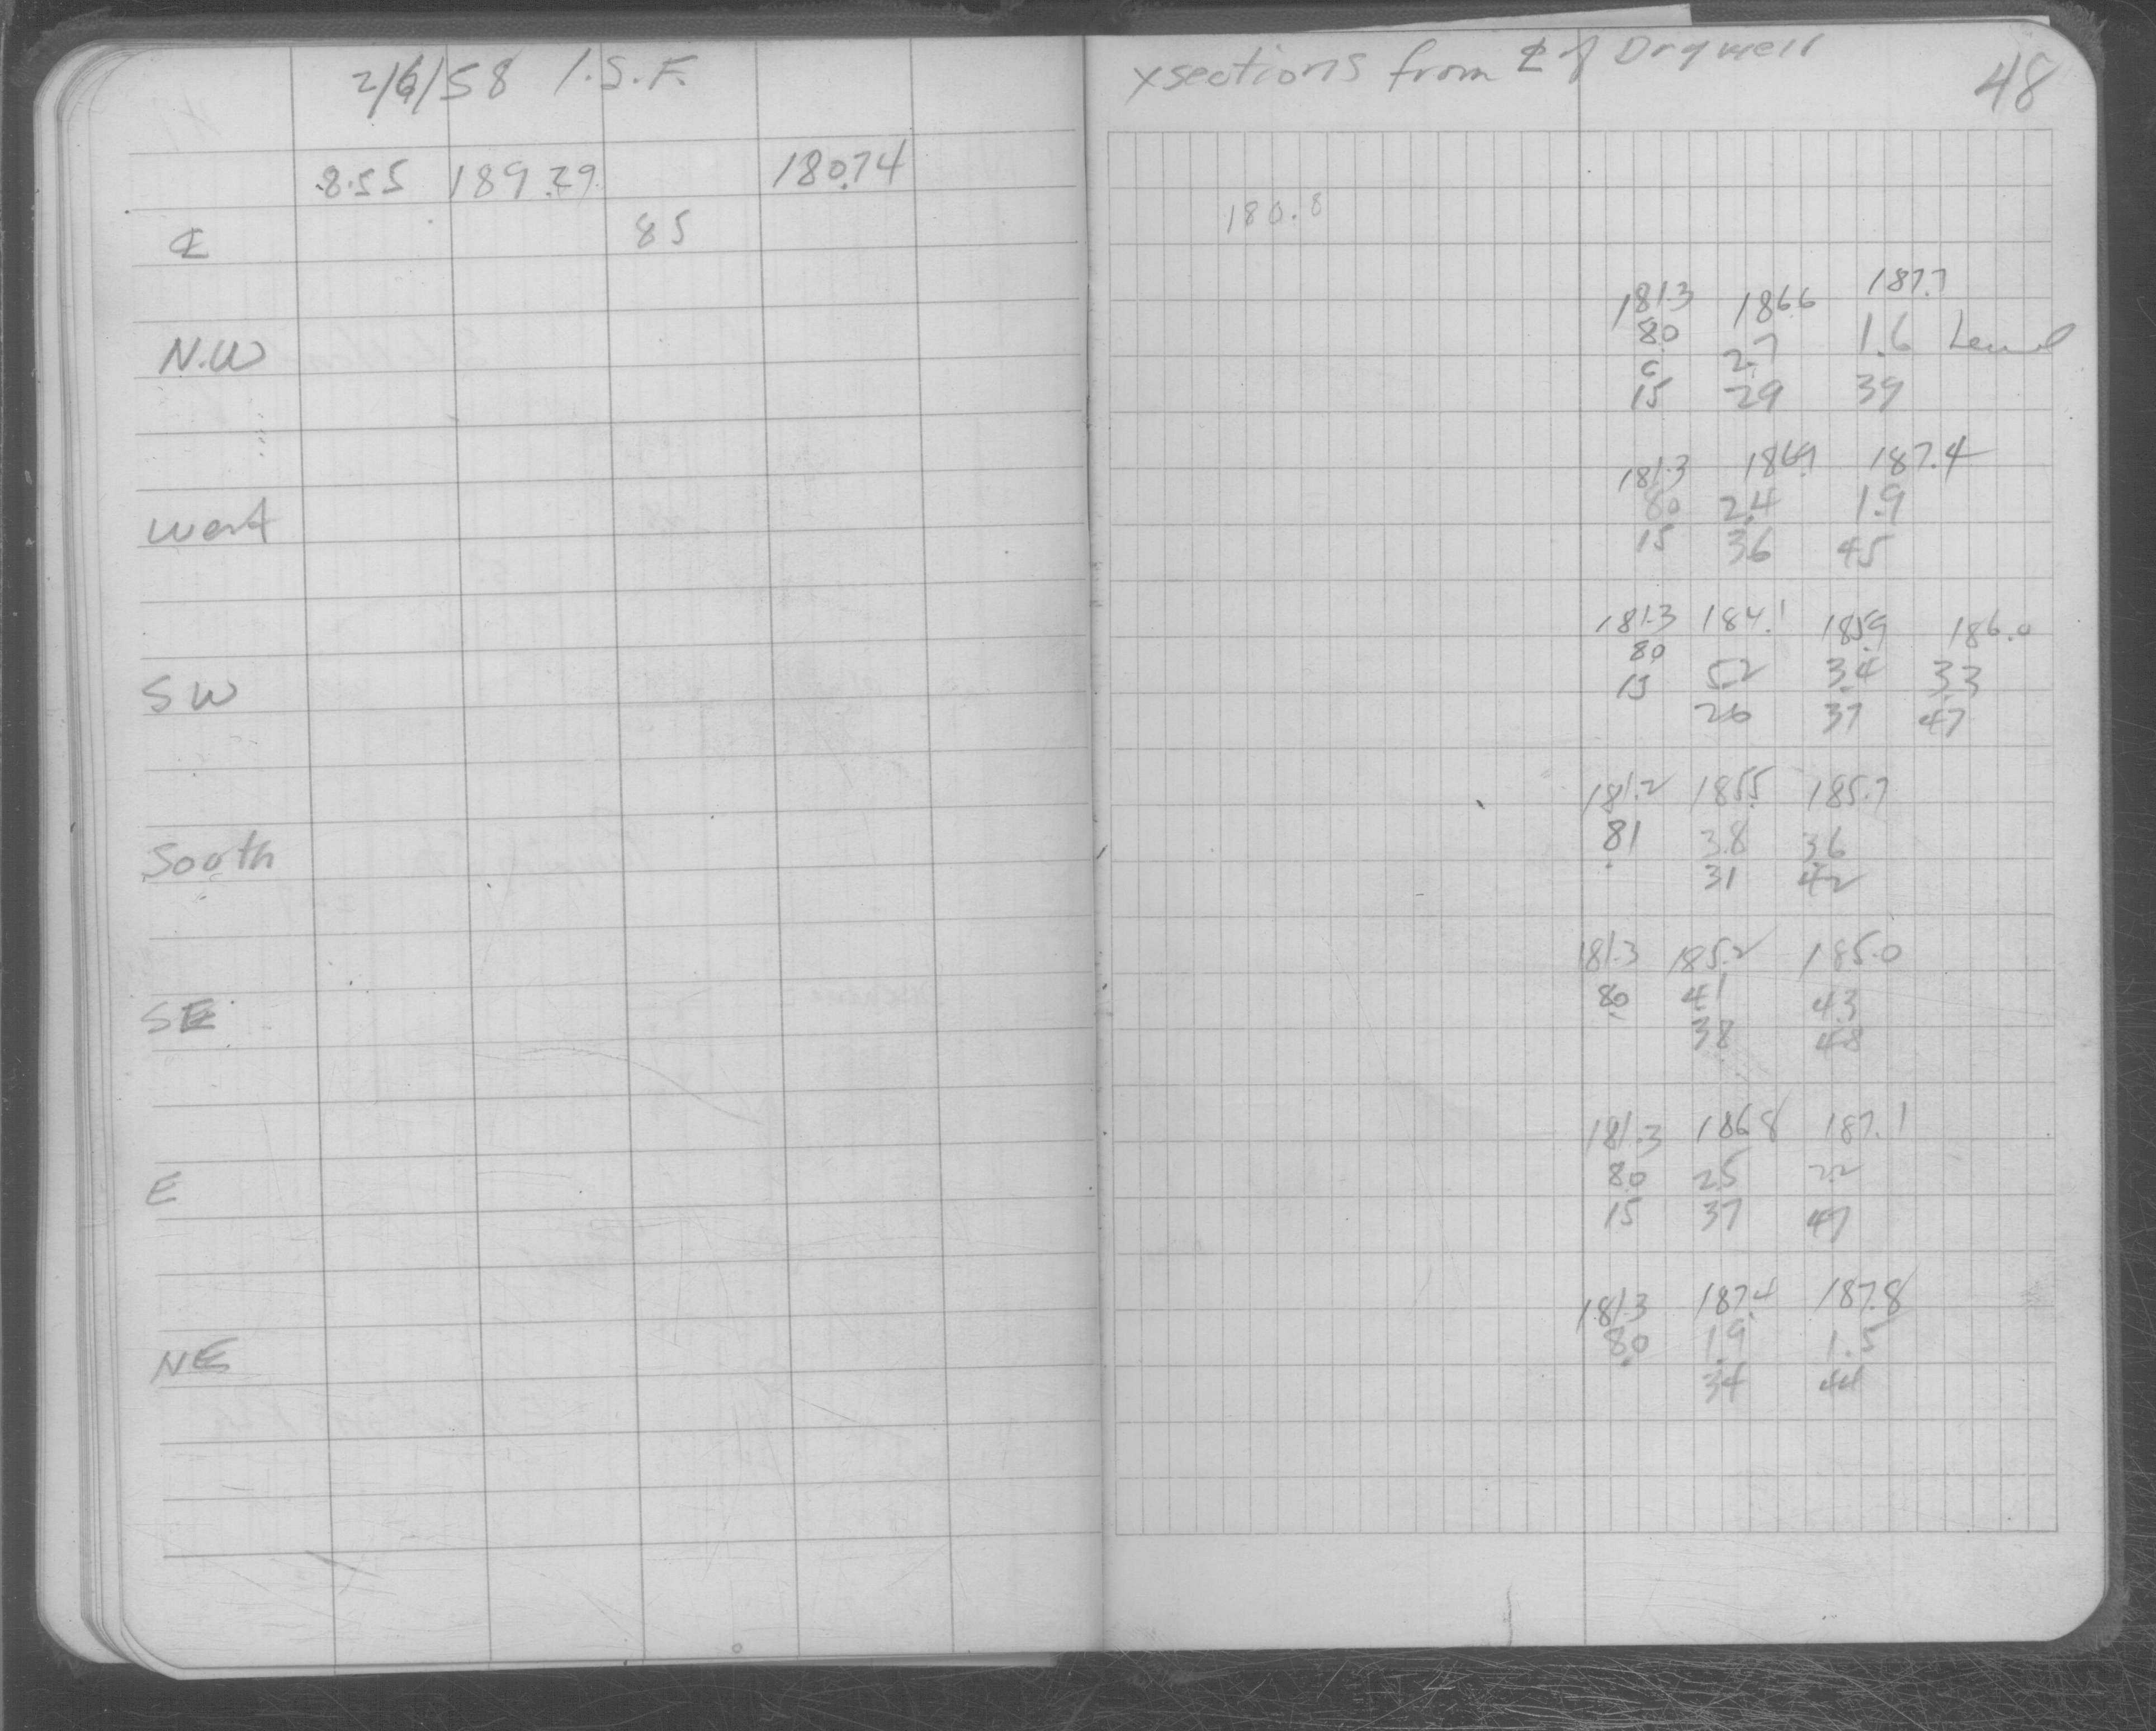 2/6/58 I.S.F.
8.55 189.29 180.74
℄ 85
N.W
West
S W
South
SE
E
NE
xsections from ℄ of Drywell
48
180.8
181.3 186.6 187.7
8.0 2.7 1.6 Level
15 29 39
181.3 186.9 187.4
8.0 2.4 1.9
15 36 45
181.3 184.1 185.9 186.0
8.0 5.2 3.4 3.3
15 26 37 47
181.2 185.5 185.7
8.1 3.8 3.6
31 42
181.3 185.2 185.0
8.0 4.1 4.3
38 48
181.3 186.8 187.1
8.0 2.5 2.2
15 37 47
181.3 187.4 187.8
8.0 1.9 1.5
34 44